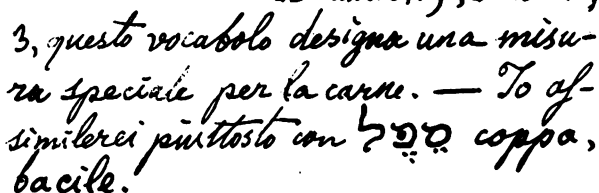 3, questo vocabolo designa una misu-
ra speciale per la carne. — Io as-
similerei piuttosto con סֵפֶל coppa,
bacile.